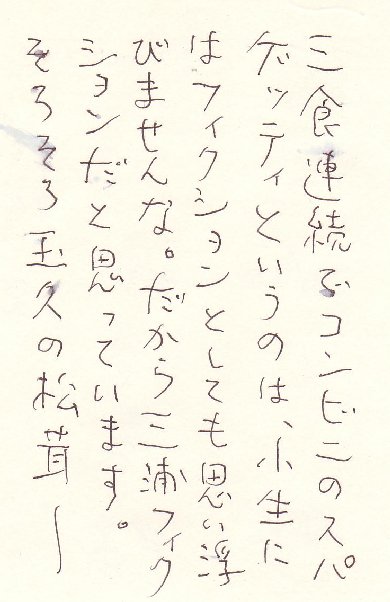 三食連続でコンビニのスパ
ゲッティというのは、小生に
はフィクションとしても思い浮
びませんな。だから三浦フィク
ションだと思っています。
そろそろ玉久の松茸〜